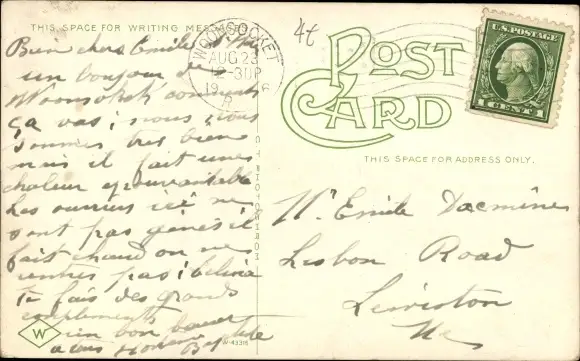 THIS SPACE FOR WRITING MESSAGES
Bien chers Emile
un bonjour de
Woonsoket comment
ça vas; nous, nous
sommes très bien
mais il fait une
chaleur épouvantable
Les ouvriers ici ne
sont pas gênés il
fait chaud on ne
rentres pas;
te fais des grands
compliments
un bon baiser
a tous
WOONSOCKET
AUG 23
12-30P
19
R
4¢
POST
CARD
U.S. POSTAGE
1 CENT 1
THIS SPACE FOR ADDRESS ONLY.
Mr Emile
Lisbon Road
Lewiston
Me
W
W-43315